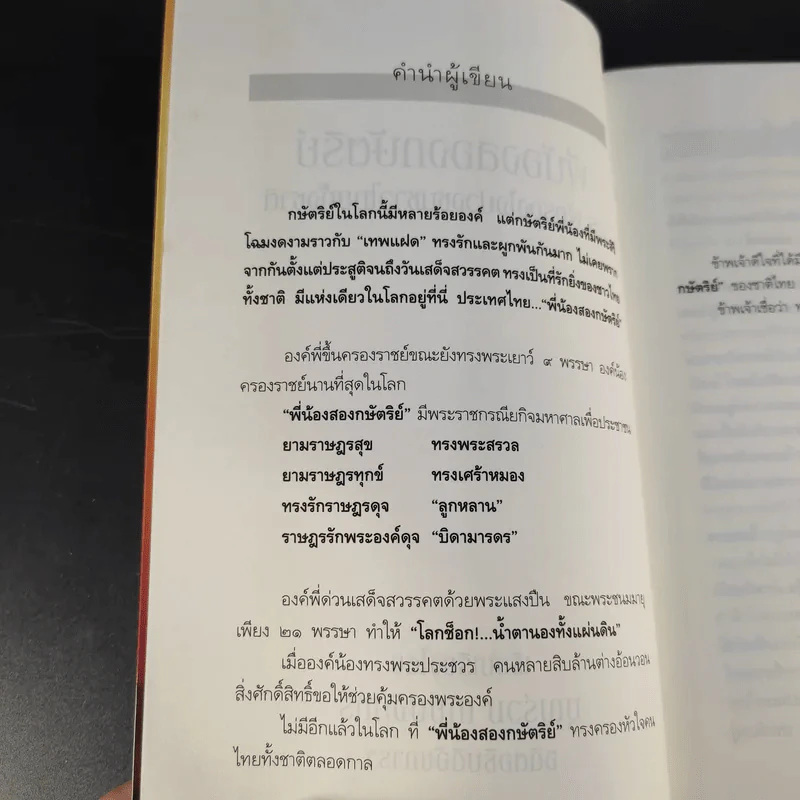 คำนำผู้เขียน
กษัตริย์ในโลกนี้มีหลายร้อยองค์ แต่กษัตริย์พี่น้องที่มีพระสิริ
โฉมงดงามราวกับ “เทพแฝด” ทรงรักและผูกพันกันมาก ไม่เคยพราก
จากกันตั้งแต่ประสูติจนถึงวันเสด็จสวรรคต ทรงเป็นที่รักยิ่งของชาวไทย
ทั้งชาติ มีแห่งเดียวในโลกอยู่ที่นี่ ประเทศไทย...“พี่น้องสองกษัตริย์”
องค์พี่ขึ้นครองราชย์ขณะยังทรงพระเยาว์ ๙ พรรษา องค์น้อง
ครองราชย์นานที่สุดในโลก
“พี่น้องสองกษัตริย์” มีพระราชกรณียกิจมหาศาลเพื่อประชาชน
ยามราษฎรสุข ทรงพระสรวล
ยามราษฎรทุกข์ ทรงเศร้าหมอง
ทรงรักราษฎรดุจ “ลูกหลาน”
ราษฎรรักพระองค์ดุจ “บิดามารดร”
องค์พี่ด่วนเสด็จสวรรคตด้วยพระแสงปืน ขณะพระชนมมายุ
เพียง ๒๑ พรรษา ทำให้ “โลกช็อก!...น้ำตานองทั้งแผ่นดิน”
เมื่อองค์น้องทรงพระประชวร คนหลายสิบล้านต่างอ้อนวอน
สิ่งศักดิ์สิทธิ์ขอให้ช่วยคุ้มครองพระองค์
ไม่มีอีกแล้วในโลก ที่ “พี่น้องสองกษัตริย์” ทรงครองหัวใจคน
ไทยทั้งชาติตลอดกาล
ข้าพเจ้าดีใจที่ได้มี
กษัตริย์” ของชาติไทย
ข้าพเจ้าเชื่อว่า